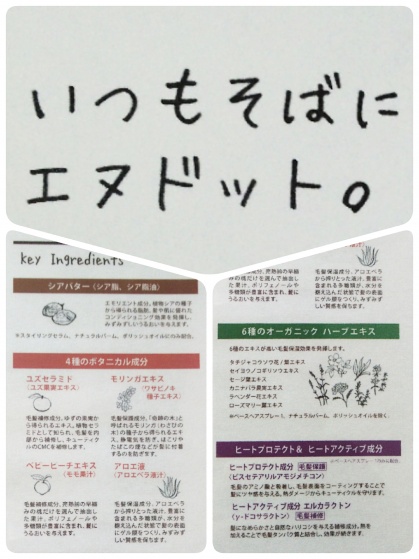 いつもそばに
エヌドット。
key Ingredients
シアバター(シア脂、シア脂油)
エモリエント成分。植物シアの種子
から得られる脂肪。髪や肌に優れた
コンディショニング効果を発揮し、
みずみずしいうるおいを与えます。
※スタイリングセラム、ナチュラルバーム、ポリッシュオイルにのみ配合。
4種のボタニカル成分
ユズセラミド
(ユズ果実エキス)
毛髪補修成分。ゆずの果実か
ら得られるエキス。植物セラ
ミドとして知られ、毛髪を内
部から補修し、キューティク
ルのCMCを補修します。
モリンガエキス
(ワサビノキ
種子エキス)
毛髪保護成分。「奇跡の木」と
呼ばれるモリンガ(わさびの
木)の種子から得られるエキ
ス。静電気を防ぎ、ほこりや
たばこの煙などが髪に付着す
るのを防ぎます。
ベビーピーチエキス
(モモ果汁)
毛髪補修成分。芹熟前の早摘
みの桃だけを選んで抽出し
た果汁。ポリフェノールや
多種類が豊富に含まれ、髪に
うるおいを与えます。
アロエ液
(アロエベラ液汁)
毛髪保湿成分。アロエベラ
から搾りとった液汁。豊富に
含まれる多糖類が、水分を
抱え込んだ状態で髪の表面
にゲル膜をつくり、みずみず
しい質感を保ちます。
6種のオーガニック ハーブエキス
6種のエキスが高い毛髪保湿効果を発揮します。
タチジャコウソウ花/葉エキス
セイヨウノコギリソウエキス
セージ葉エキス
カニナバラ果実エキス
ラベンダー花エキス
ローズマリー葉エキス
※ベースヘアスプレー、ナチュラルバーム、ポリッシュオイルを除く。
ヒートプロテクト& ヒートアクティブ成分
ヒートプロテクト成分 毛髪保護
(ビスセテアリルアモジメチコン)
毛髪のアミノ酸と吸着し、毛髪表面をコーティングすることで
髪にツヤ感を与える。熱ダメージからキューティクルを守ります。
ヒートアクティブ成分 エルカラクトン
(γ-ドコサラクトン) 毛髪補修
髪になめらかさと自然なハリコシを与える補修成分。熱を
加えることで毛髪タンパク質と結合し、効果が続きます。